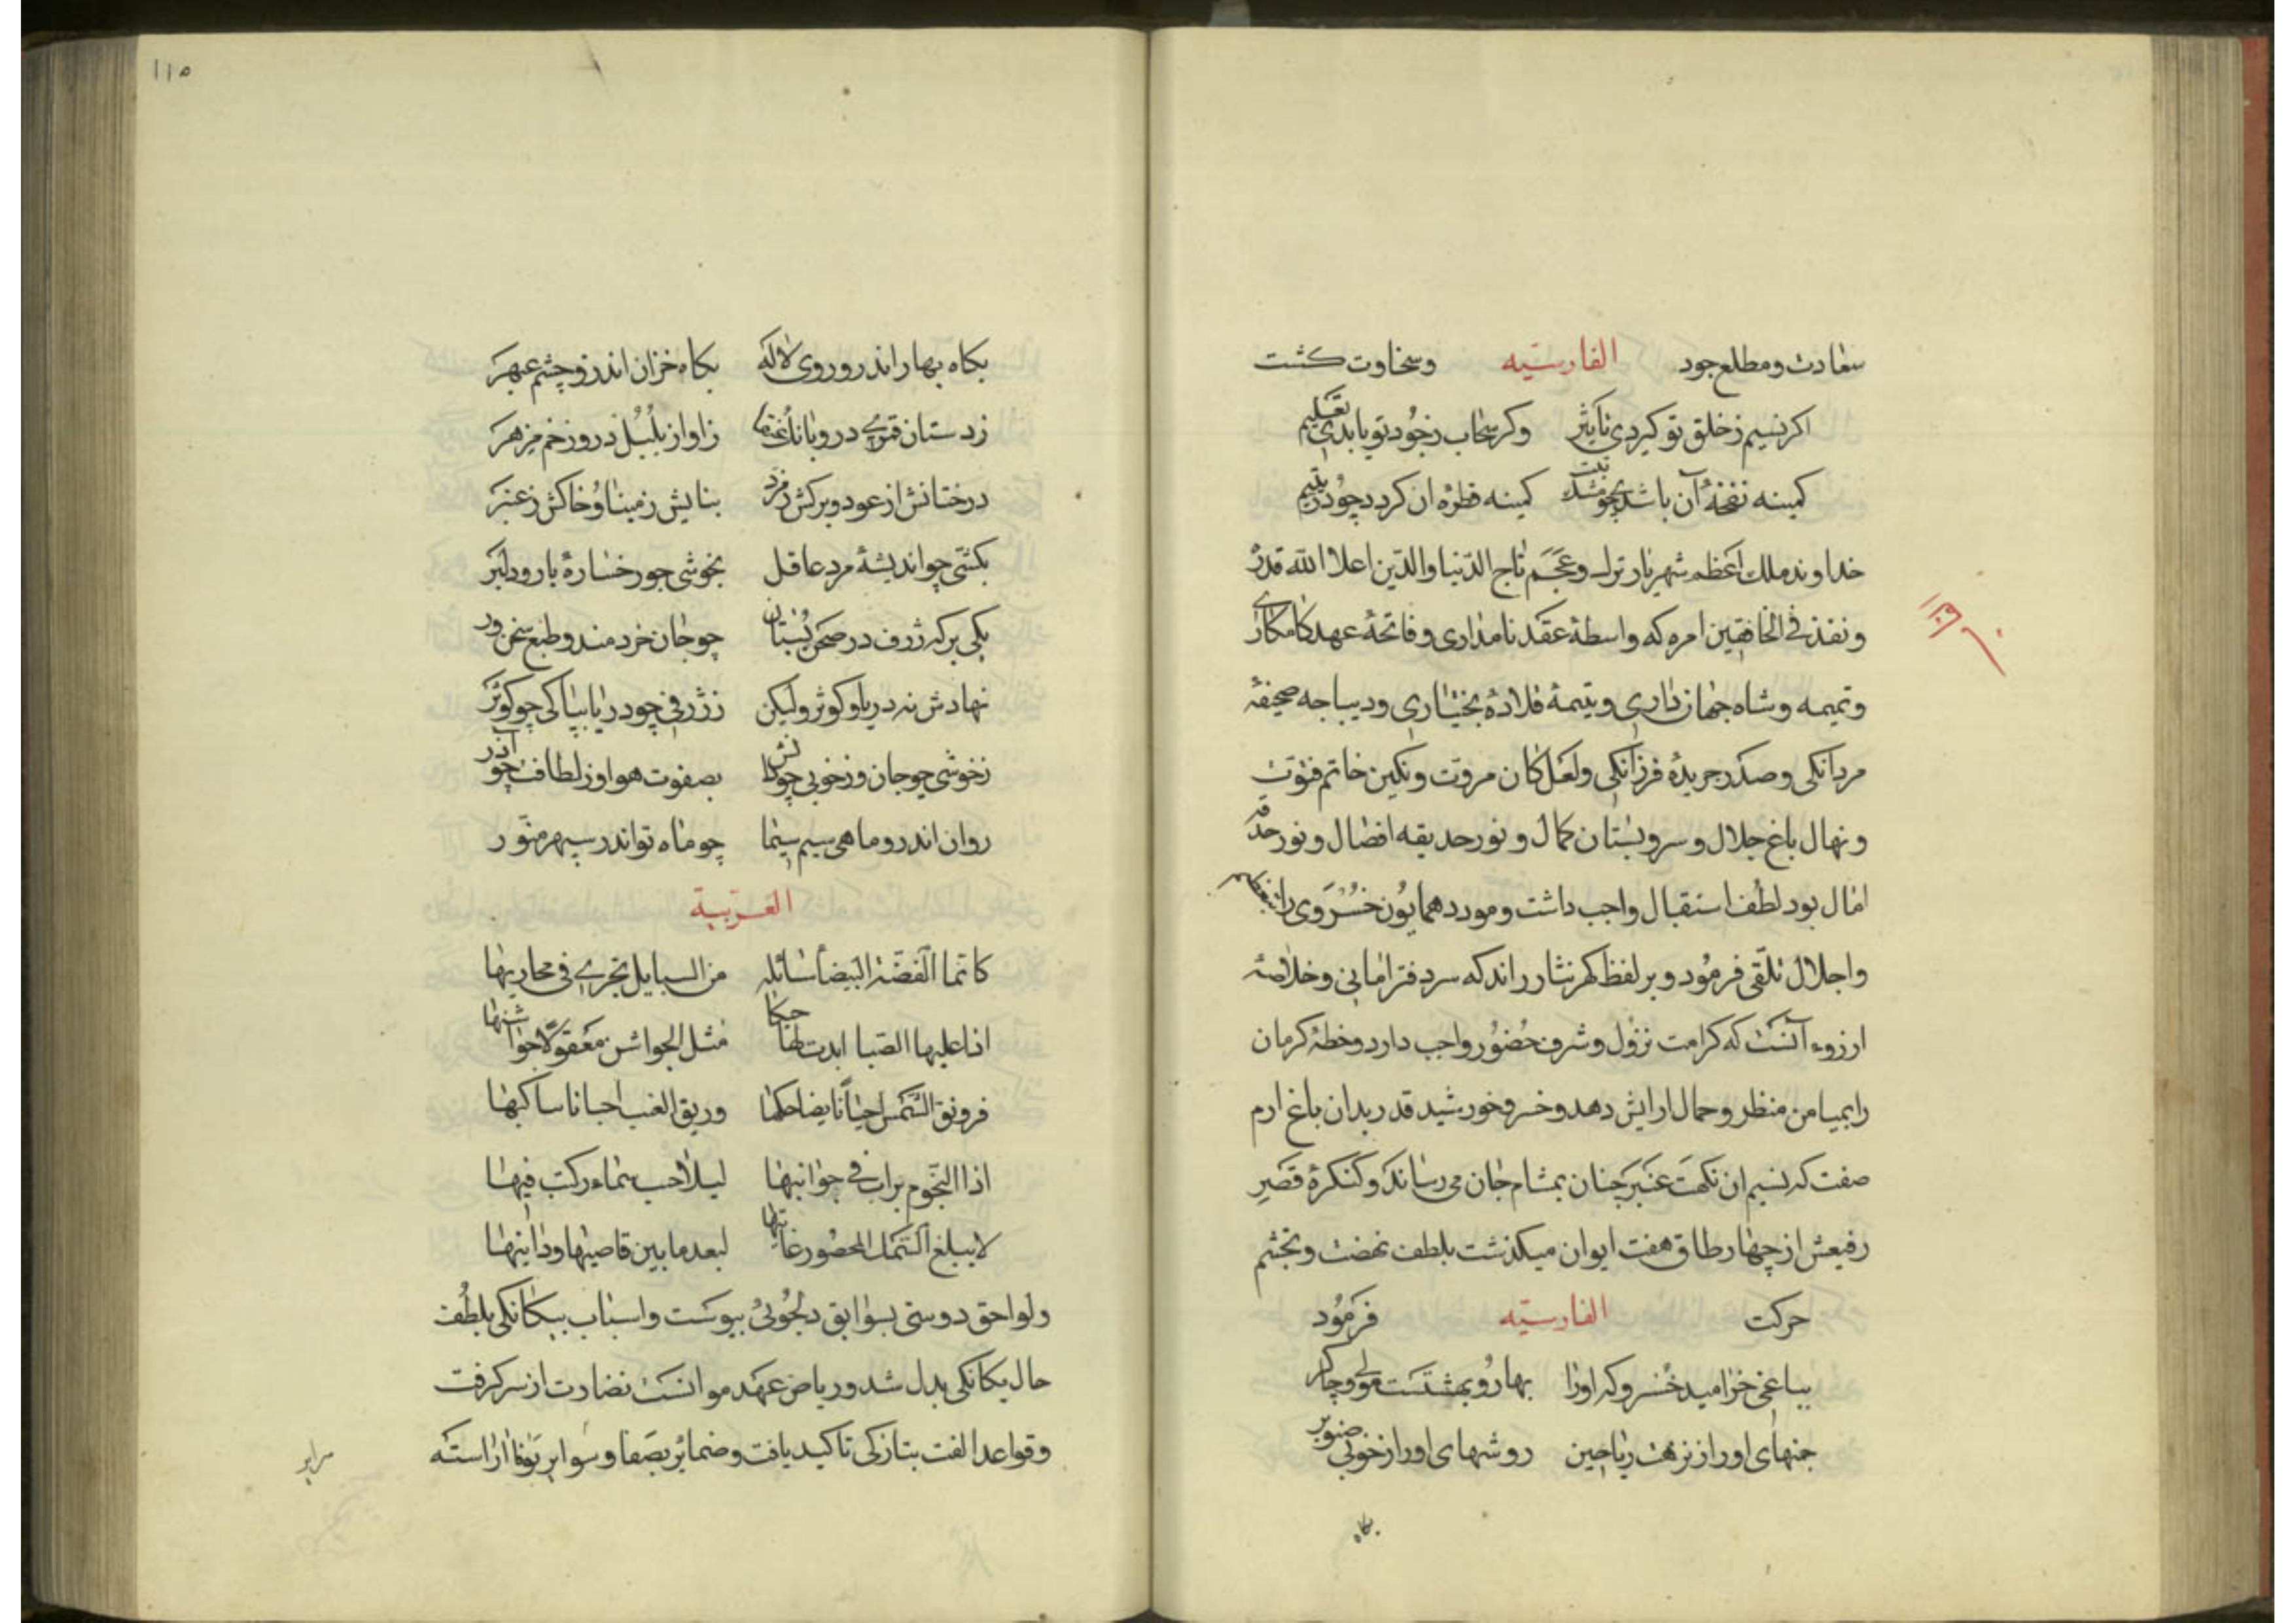 سعادت ومطلع جود الفارسیّه وسخاوت كشت
اكر نسیم زخلق تو كیردی تأثیر وكر سحاب زجود تو یابدی تعلیم
كمینه نفحهٔ آن باشد چو مشك تبت كمینه قطرهٔ ان كردد چو در یتیم
خداوند ملك اعظم شهریار ترك وعجم تاج الدّنیا والدّین اعلا الله قدره
ونفذ فی الخافقین امره كه واسطهٔ عقد نامداری وفاتحهٔ عهد كامكاری
وتمیمه وشاه جهان داری ویتیمهٔ قلادهٔ بختیاری ودیباجه صحیفهٔ
مردانكی وصدر جریدهٔ فرزانكی ولعل كان مروت ونكین خاتم فتوّت
ونهال باغ جلال وسرو بستان كمال ونور حدیقه افضال ونور حدقه
امال بود لطف استقبال واجب داشت ومورد همایون خسروی را بتعظیم
واجلال تلقّی فرمود وبر لفظ كهر نثار راند كه سر دفتر امانی وخلاصهٔ
ارزوء آنست كه كرامت نزول وشرف حضور واجب دارد وخطهٔ كرمان
را بمیامن منظر وجمال ارایش دهد وخسرو خورشید قدر بدان باغ ارم
صفت كه نسیم ان نكهت عنبر چنان بمشام جان می رساند وكنكرهٔ قصر
رفیعش از چهار طاق هفت ایوان میكذشت بلطف نهضت وتجشم
حركت الفارسیّه فرمود
بباغی خرامید خسرو كه اورا بهار وبهشتست مولی وچاكر
چمنهای اورا از نزهت ریاحین روشهای اورا از خوبی صنوبر
بكاه
١١٥
بكاه بهار اندرو روی لاله بكاه خزان اندرو چشم عبهر
زدستان قمری درو بانك عنقا زاواز بلبل درو زخم مزهر
درختانش از عود وبركش زمرد بناتش زمینا وخاكش زعنبر
بكشی چو اندیشهٔ مرد عاقل بخوشی چو رخسارهٔ یار ودلبر
یكی بركه ژرف در صحن بستان چو جان خردمند وطبع سخن ور
نهادش نه دریا وكوثر ولیكن زژرفی چو دریا بپاكی چو كوثر
زخوشی چو جان وزخوبی چو دانش بصفوت هوا وز لطافت چو آذر
روان اندرو ماهی سیم سیما چو ماه نو اندر سپهر منوّر
العربیة
كانّما الفضّة البیضأ سائله من السبایل تجری فی مجاریها
اذا علیها الصبا ابدت لها حبكا مثل الجواشن معقولا حواشیها
فرونق الشمس احیاناً یضاحكها وریق الغیث احیانا یباكیها
اذا النجوم برات فی جوانبها لیلا حسب سماء ركبت فیها
لا یبلغ السمك المحصور غایتها لبعد ما بین قاصیها ودانیها
ولواحق دوستی بسوابق دلجوئی بپوست واسباب بیكانكی بلطف
حال یكانكی بدل شد وریاض عهد موانست نضارت از سر كرفت
وقواعد الفت بتازكی تاكید یافت وضمائر بصفا وسوایر بوفا اراسته